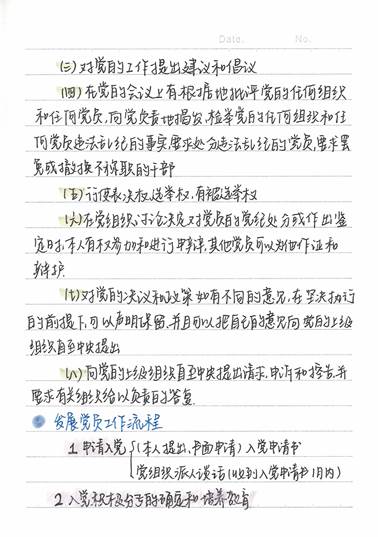 Date. No.
(三)对党的工作提出建议和倡议
(四)在党的会议上有根据地批评党的任何组织
和任何党员,向党负责地揭发、检举党的任何组织和任
何党员违法乱纪的事实,要求处分违法乱纪的党员,要求罢
免或撤换不称职的干部
(五)行使表决权、选举权,有被选举权
(六)在党组织讨论决定对党员的党纪处分或作出鉴
定时,本人有权参加和进行申辩,其他党员可以为他作证和
辩护.
(七)对党的决议和政策如有不同的意见,在坚决执行
的前提下,可以声明保留,并且可以把自己的意见向党的上级
组织直至中央提出
(八)向党的上级组织直至中央提出请求、申诉和控告,并
要求有关组织给以负责的答复.
发展党员工作流程
1 申请入党 (本人提出、书面申请)入党申请书
党组织派人谈话(收到入党申请书1月内)
2 入党积极分子的确定和培养教育